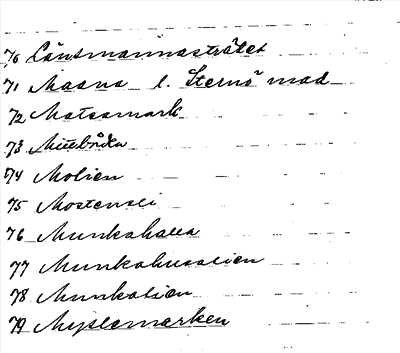 70 Länsmannasträtet
71 Maana l. Sternsmad
72 Matsamark
73 Mittbåda
74 Molien
75 Mostensli
76 Munkahalla
77 Munkahusalien
78 Munkalien
79 Myslemarken